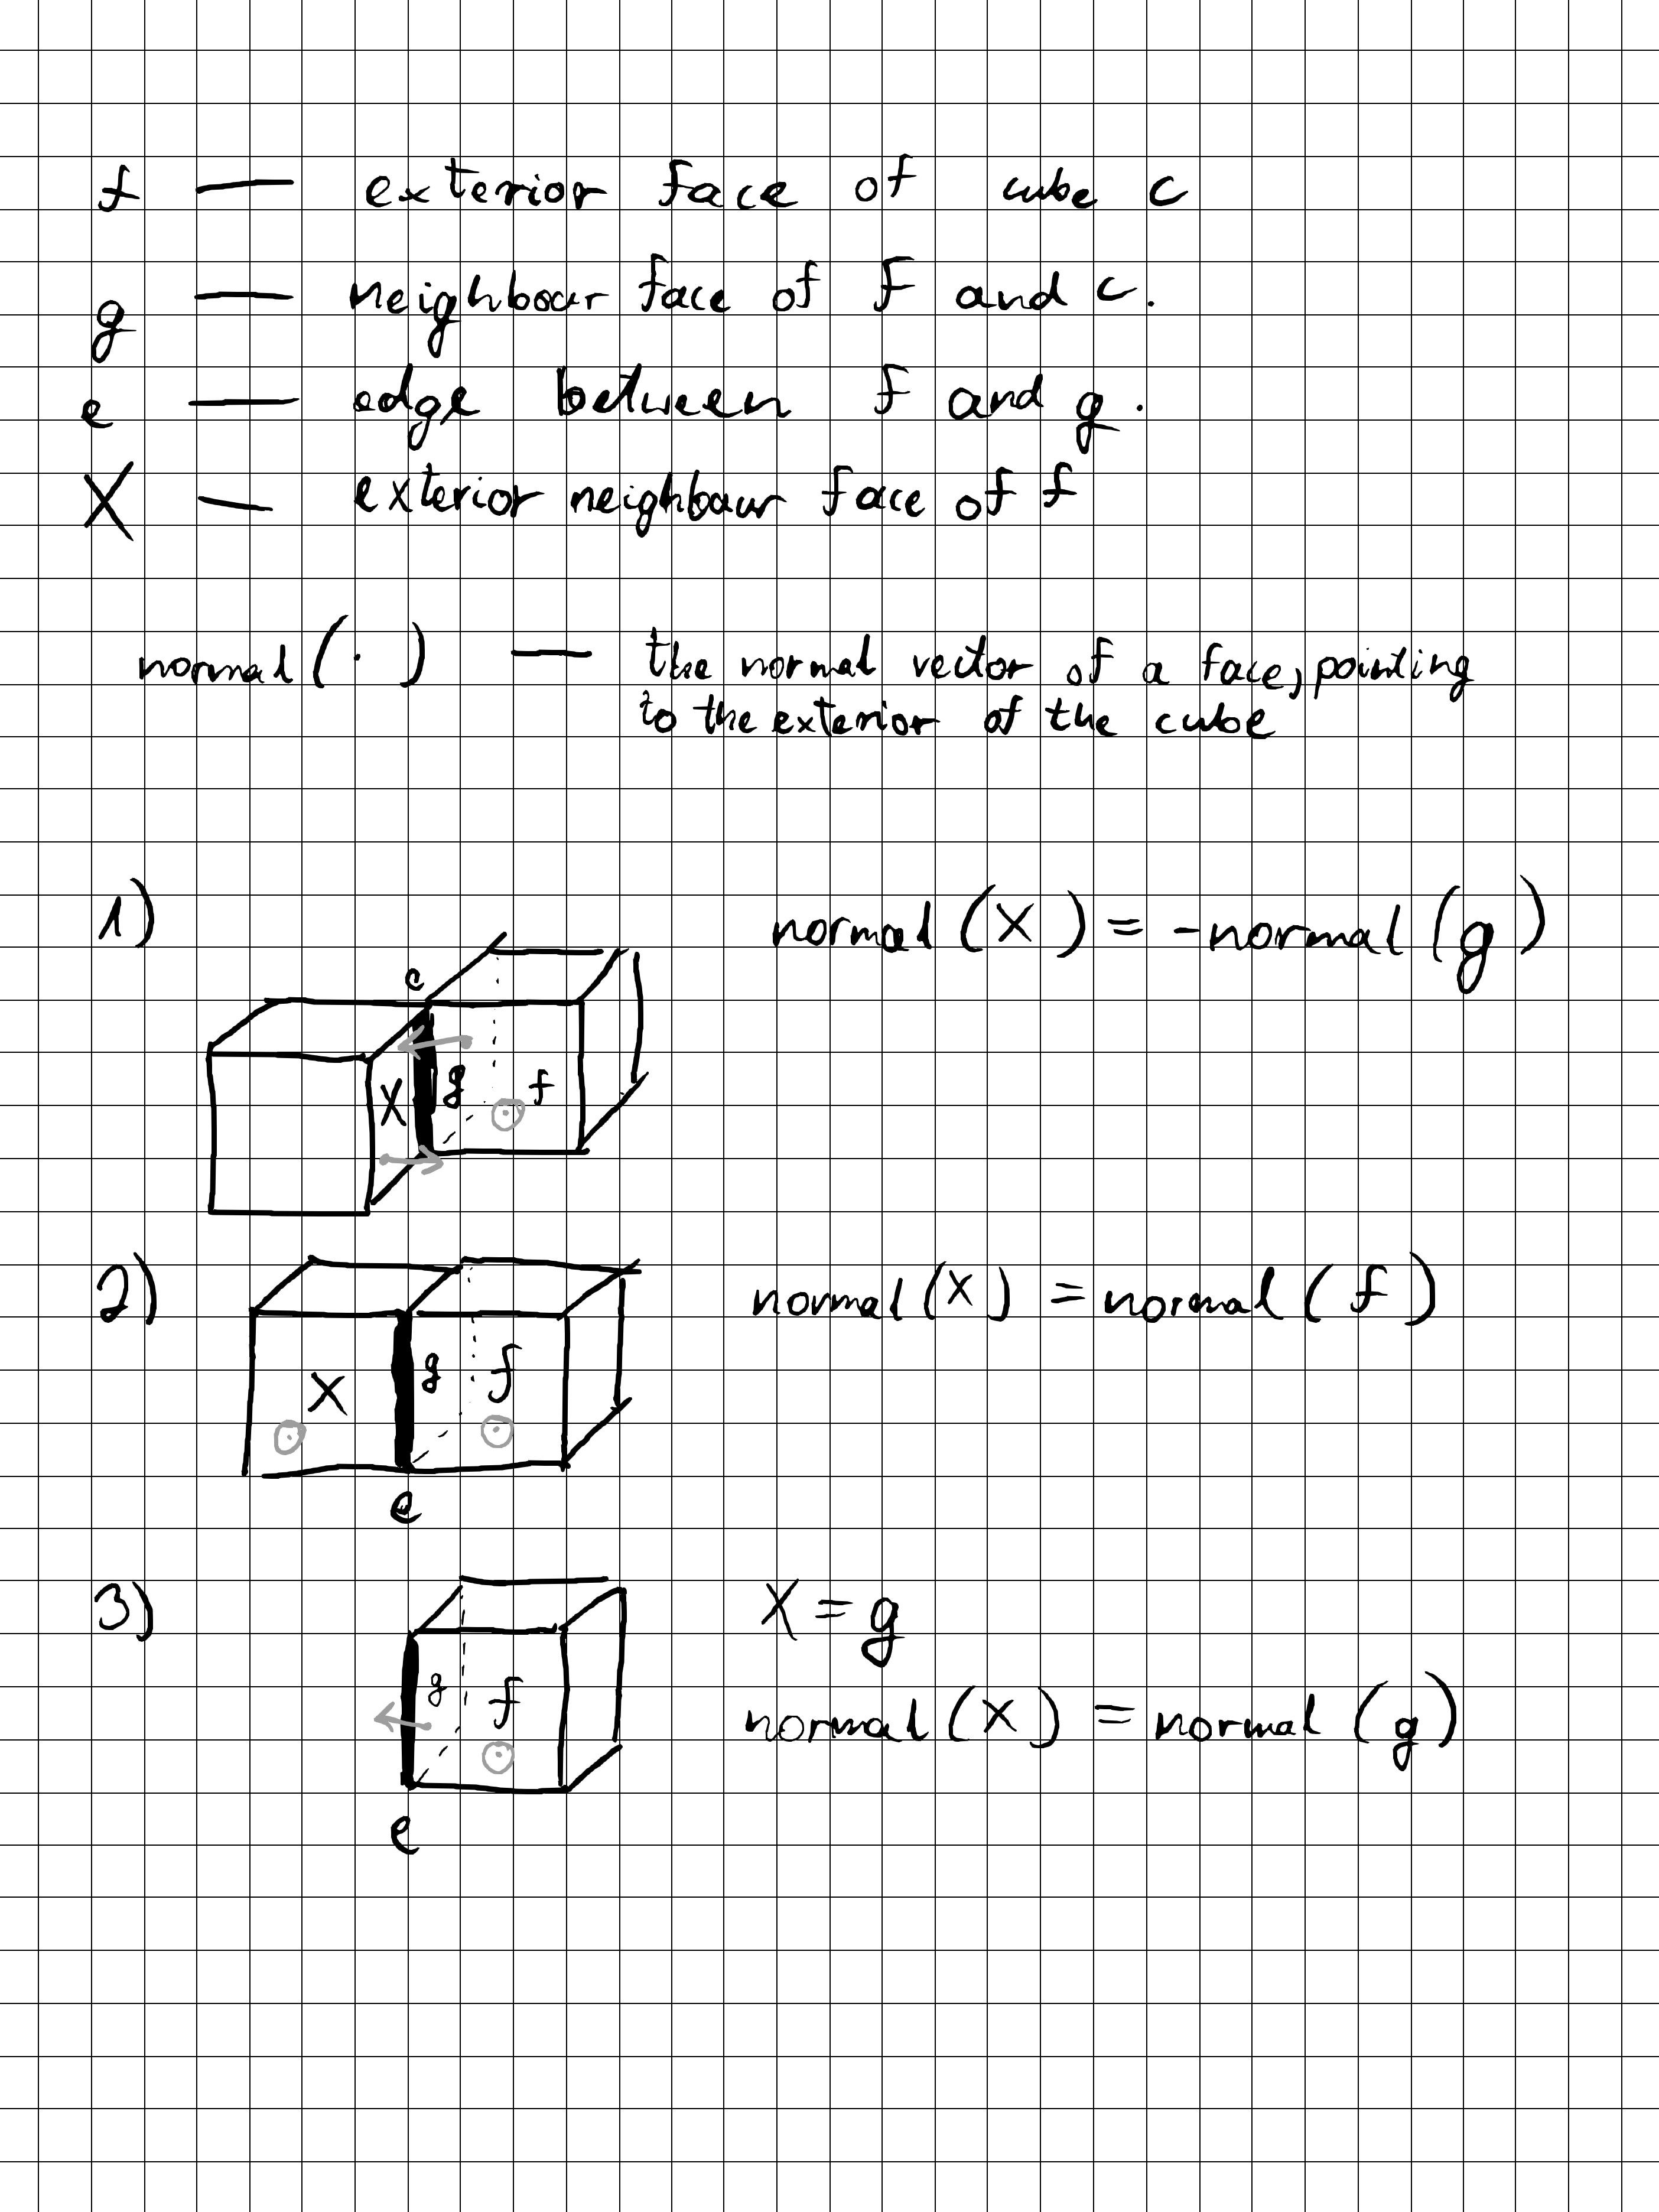 f — exterior face of cube c
g — neighbour face of f and c.
e — edge between f and g.
X — exterior neighbour face of f
normal(·) — the normal vector of a face, pointing
to the exterior of the cube
1) normal(X) = -normal(g)
e
X g f
2) normal(X) = normal(f)
X g f
e
3) X = g
g f normal(X) = normal(g)
e